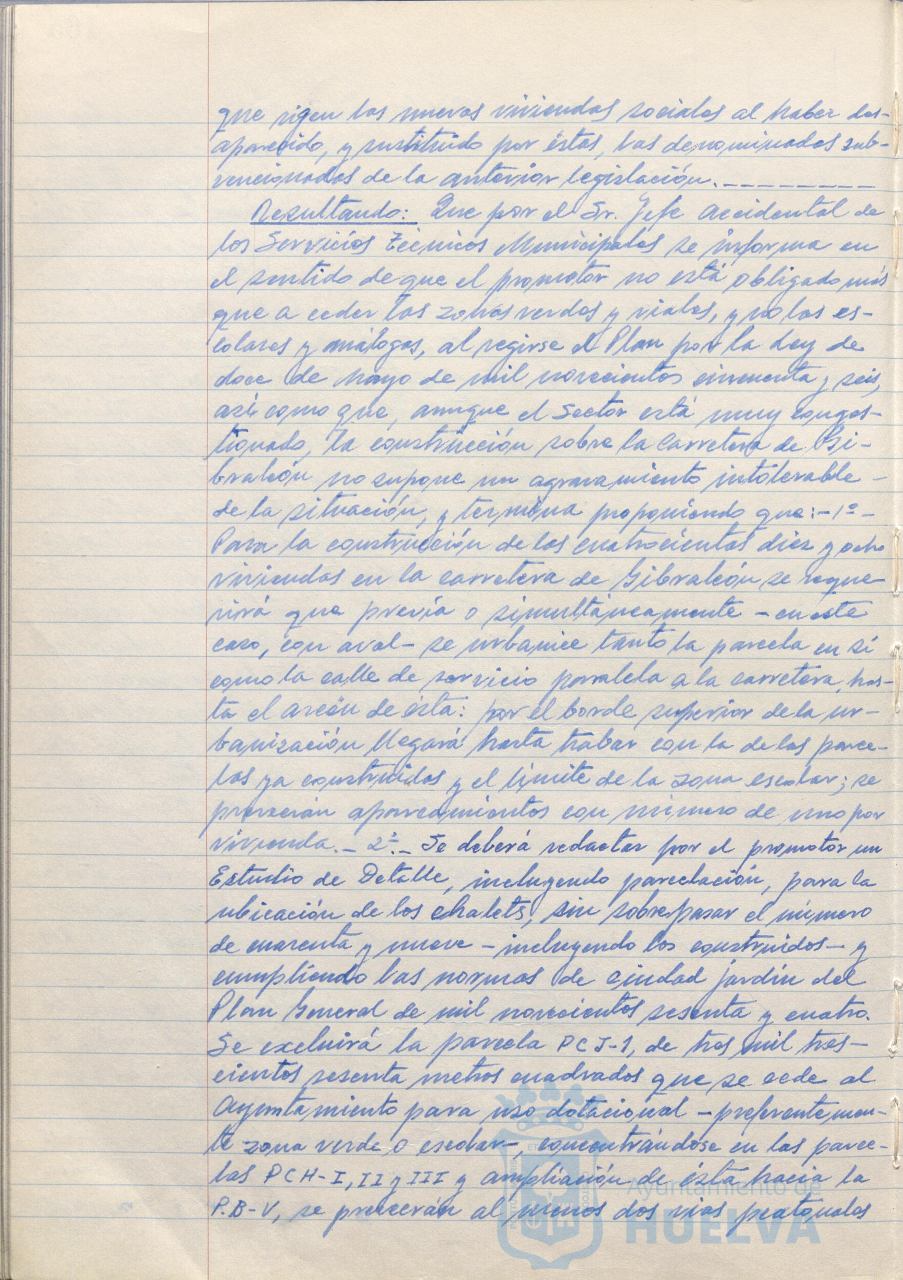 que rigen las nuevas viviendas sociales al haber des-
aparecido, y sustituido por éstas, las denominadas sub-
vencionadas de la anterior legislación.---------
Resultando: Que por el Sr. Jefe Accidental de
los Servicios Técnicos Municipales se informa en
el sentido de que el promotor no está obligado más
que a ceder las zonas verdes y viales, y no las es-
colares y análogas, al regirse el Plan por la Ley de
doce de Mayo de mil novecientos cincuenta y seis,
así como que, aunque el Sector está muy conges-
tionado, la construcción sobre la Carretera de Gi-
braleón no supone un agravamiento intolerable -
de la situación, y termina proponiendo que:- 1º -
Para la construcción de las cuatrocientas diez y ocho
viviendas en la carretera de Gibraleón se reque-
rirá que previa o simultáneamente - en este
caso, con aval - se urbanice tanto la parcela en sí
como la calle de servicio paralela a la carretera, has-
ta el arcén de ésta: por el borde superior de la ur-
banización llegará hasta trabar con la de las parce-
las ya construidas y el límite de la zona escolar; se
preverán aparcamientos con número de uno por
vivienda.- 2º.- Se deberá redactar por el promotor un
Estudio de Detalle, incluyendo parcelación, para la
ubicación de los chalets, sin sobrepasar el número
de cuarenta y nueve - incluyendo los construidos - y
cumpliendo las normas de ciudad jardín del
Plan General de mil novecientos sesenta y cuatro.
Se excluirá la parcela PCJ-1, de tres mil tres-
cientos sesenta metros cuadrados que se cede al
Ayuntamiento para uso dotacional - preferentemen-
te zona verde o escolar -, concentrándose en las parce-
las PCH-I, II y III y ampliación de ésta hacia la
P.B-V, se preverán al menos dos vías peatonales
Ayuntamiento de
HUELVA